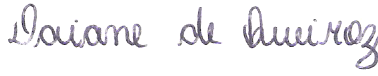 Daiane de Queiroz